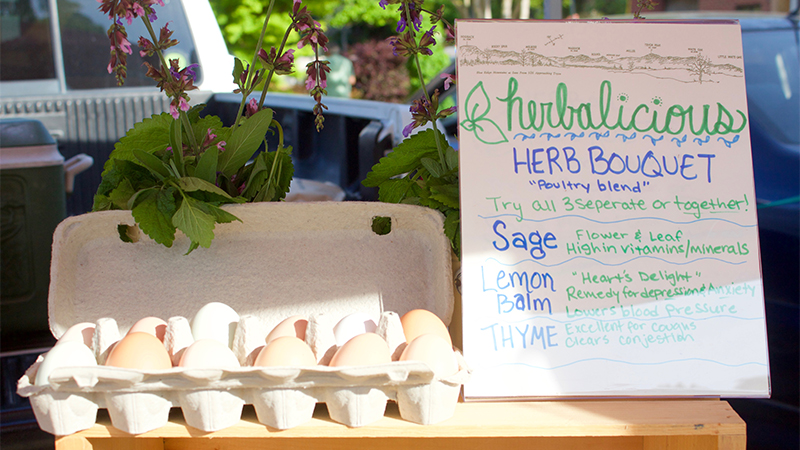 herbalicious
HERB BOUQUET
"Poultry blend"
Try all 3 seperate or together!
Sage
Flower & Leaf
High in vitamins/minerals
Lemon Balm
"Heart's Delight"
Remedy for depression & Anxiety
Lowers blood Pressure
THYME
Excellent for cougus
clears conjestion